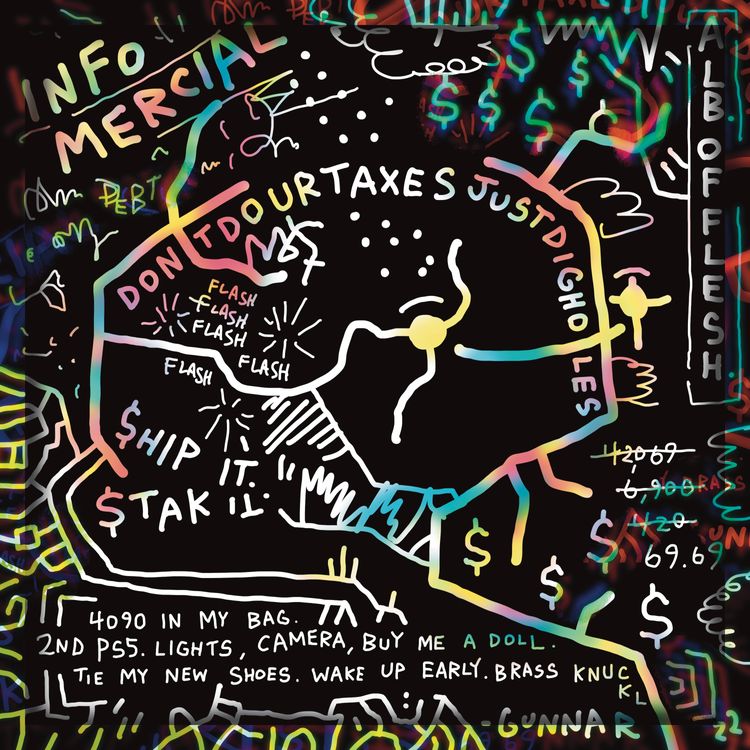 INFO
MERCIAL
ALB OF FLESH.
DEBT
DON'T DO UR TAXES JUST DIG HOLES
FLASH
FLASH
FLASH
FLASH
FLASH
$HIP
IT.
$TAK IT.
42069
6,900
420
69.69
4090 IN MY BAG.
2ND PS5. LIGHTS, CAMERA, BUY ME A DOLL.
TIE MY NEW SHOES. WAKE UP EARLY. BRASS KNUC
KL
-GUNNAR
22